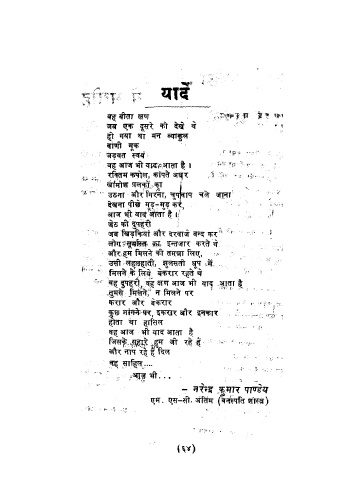 यादें
वह बीता क्षण
जब एक दूसरे को देखे थे
हो गया था मन व्याकुल
वाणी मूक
जड़वत स्वयं
वह आज भी याद आता है ।
रक्तिम कपोल, कांपते अधर
खामोश पलकों का
उठना और गिरना, चुपचाप चले जाना
देखना पीछे मुड़-मुड़ कर,
आज भी याद आता है ।
जेठ की दुपहरी
जब खिड़कियां और दरवाजे बन्द कर
लोग का इन्तजार करते थे
और हम मिलने की तमन्ना लिए,
उसी लहलहाती, झुलसती धूप में
मिलने के लिये बेकरार रहते थे
वह दुपहरी, वह क्षण आज भी याद आता है
तुमसे मिलने, न मिलने पर
करार और बेकरार
कुछ मांगने पर, इकरार और इनकार
होता था हासिल
वह आज भी याद आता है
जिसके सहारे हम जी रहे हैं
और नाप रहे हैं दिल
वह साहिल....
आज भी...
– नरेन्द्र कुमार पाण्डेय
एम. एस-सी. अंतिम (वनस्पति शास्त्र)
(६४)